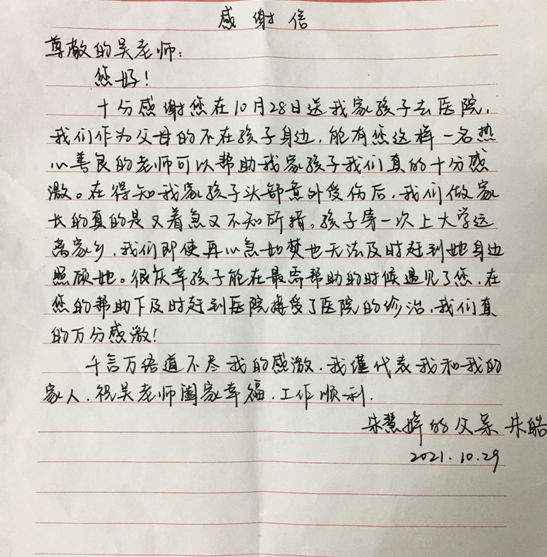 感谢信
尊敬的吴老师：
您好！
十分感谢您在10月28日送我家孩子去医院，
我们作为父母的不在孩子身边，能有您这样一名热
心善良的老师可以帮助我家孩子我们真的十分感
激。在得知我家孩子头部意外受伤后，我们做家
长的真的是又着急又不知所措。孩子第一次上大学远
离家乡，我们即使再心急如焚也无法及时赶到她身边
照顾她。很庆幸孩子能在最需帮助的时候遇见了您，在
您的帮助下及时赶到医院接受了医院的诊治，我们真
的万分感激！
千言万语道不尽我的感激，我谨代表我和我的
家人，祝吴老师阖家幸福，工作顺利．
朱慧婷的父亲 朱皓
2021.10.29